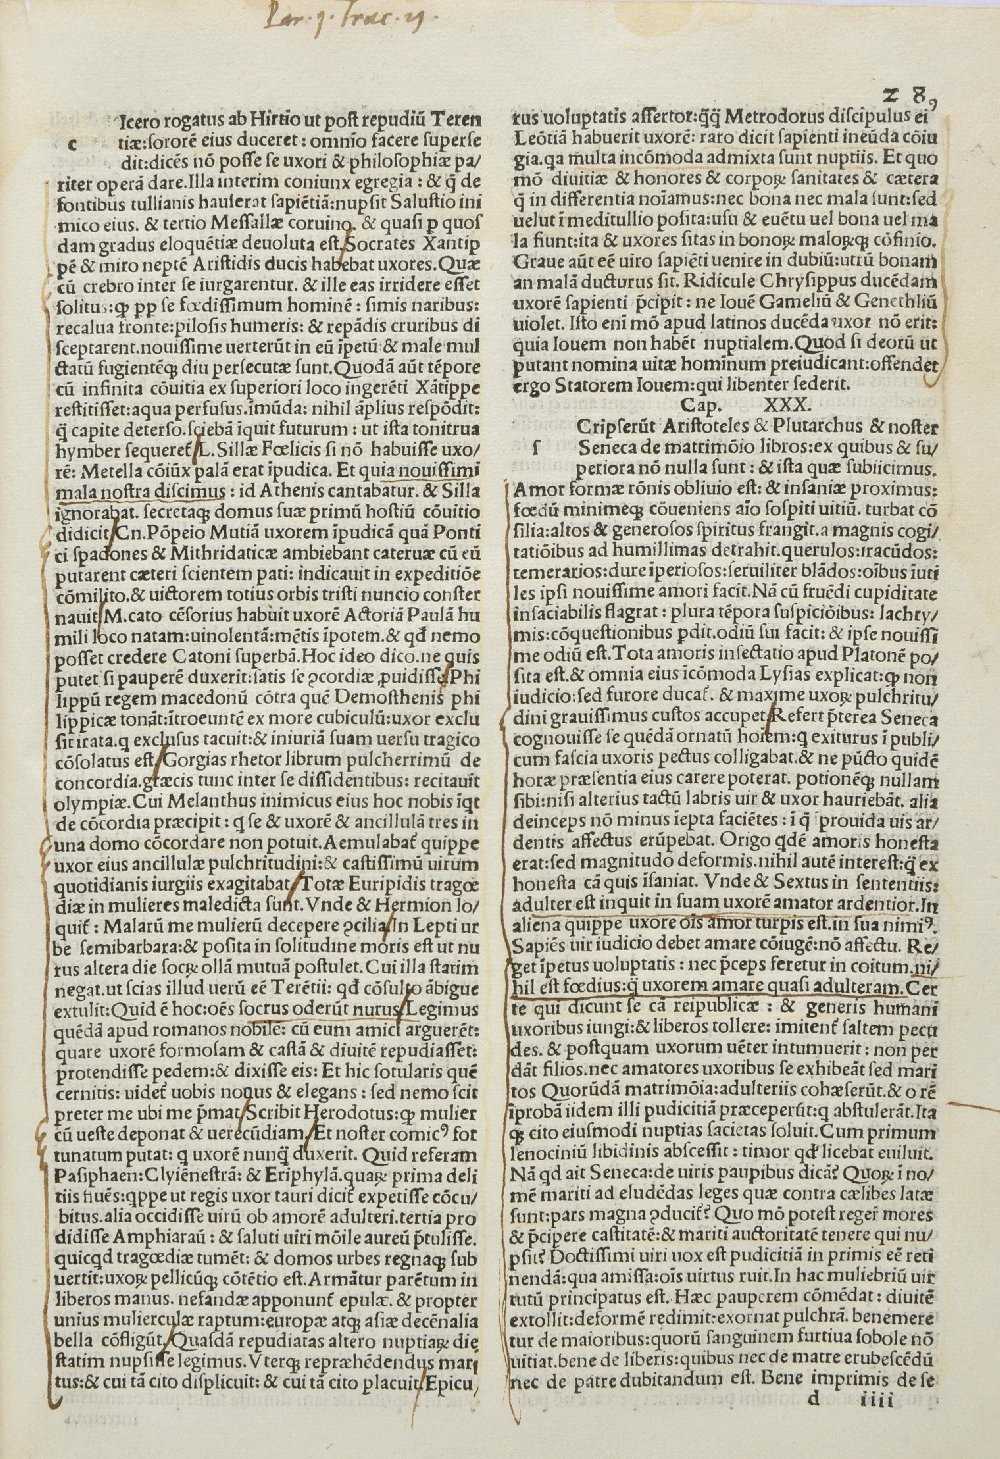 Par. 3. Trac. 13.
28
Icero rogatus ab Hirtio ut post repudiũ Teren
c tiæ: sororẽ eius duceret: omnĩo facere superse
dit: dicẽs nõ posse se uxori & philosophiæ pa/
riter operã dare. Illa interim coniunx egregia: & q̃ de
fontibus tullianis hauserat sapiẽtiã: nupsit Salustio ini
mico eius. & tertio Messallæ coruino. & quasi ꝑ quos
dam gradus eloquẽtiæ deuoluta est. Socrates Xantip
pẽ & miro neptẽ Aristidis ducis habebat uxores. Quæ
cũ crebro inter se iurgarentur. & ille eas irridere esset
solitus: ꝙ ꝓꝑ se fœdissimum hominẽ: simis naribus:
recalua fronte: pilosis humeris: & repãdis cruribus di
sceptarent. nouissime uerterũt in eũ ĩpetũ & male mul
ctatũ fugientẽꝗ diu persecutæ sunt. Quodã aũt tẽpore
cũ infinita cõuitia ex superiori loco ingerẽti Xãtippe
restitisset: aqua perfusus. ĩmũda: nihil ãplius respõdit:
q̃ capite deterso. sciebã ĩquit futurum: ut ista tonitrua
hymber sequeret̃. L. Sillæ Fœlicis si nõ habuisse uxo/
rẽ: Metella cõiũx palã erat ĩpudica. Et quia nouissimi
mala nostra discimus: id Athenis cantabatur. & Silla
ignorabat. secretaꝗ domus suæ primũ hostiũ cõuitio
didicit. Cn. Põpeio Mutiã uxorem ĩpudicã quã Ponti
ci spadones & Mithridaticæ ambiebant cateruæ cũ eũ
putarent cæteri scientem pati: indicauit in expeditiõe
cõmilito. & uictorem totius orbis tristi nuncio conster
nauit. M. cato cẽsorius habuit uxorẽ Actoriã Paulã hu
mili loco natam: uinolentã: mẽtis ĩpotem. & qđ nemo
posset credere Catoni superbã. Hoc ideo dico. ne quis
putet si pauperẽ duxerit: satis se ꝯcordiæ ꝓuidisse. Phi
lippũ regem macedonũ cõtra quẽ Demosthenis phi
lippicæ tonãt: ĩtroeuntẽ ex more cubiculũ: uxor exclu
sit irata. q exclusus tacuit: & iniuriã suam uersu tragico
cõsolatus est. Gorgias rhetor librum pulcherrimũ de
concordia. græcis tunc inter se dissidentibus: recitauit
olympiæ. Cui Melanthus inimicus eius hoc nobis ĩqt
de cõcordia præcipit: q se & uxorẽ & ancillulã tres in
una domo cõcordare non potuit. Aemulabat̃ quippe
uxor eius ancillulæ pulchritudini: & castissimũ uirum
quotidianis iurgiis exagitabat. Totæ Euripidis tragœ
diæ in mulieres maledicta sunt. Vnde & Hermion lo/
quit̃: Malarũ me mulierũ decepere ꝯcilia. In Lepti ur
be semibarbara: & posita in solitudine moris est ut nu
rus altera die socrꝝ ollã mutuã postulet. Cui illa statim
negat. ut scias illud uerũ eẽ Terẽtii: qđ cõsulto ãbigue
extulit: Quid ẽ hoc: oẽs socrus oderũt nurus. Legimus
quẽdã apud romanos nobilẽ: cũ eum amici arguerẽt:
quare uxorẽ formosam & castã & diuitẽ repudiasset:
protendisse pedem: & dixisse eis: Et hic sotularis quẽ
cernitis: uidet̃ uobis nouus & elegans: sed nemo scit
preter me ubi me p̃mat. Scribit Herodotus: ꝙ mulier
cũ ueste deponat & uerecũdiam. Et noster comicꝰ for
tunatum putat: q uxorẽ nunq̃ duxerit. Quid referam
Pasiphaen: Clyiẽnestrã: & Eriphylã. quaꝝ prima deli
tiis fluẽs: qppe ut regis uxor tauri dicit̃ expetisse cõcu/
bitus. alia occidisse uirũ ob amorẽ adulteri. tertia pro
didisse Amphiaraũ: & saluti uiri mõile aureũ p̃tulisse.
quicqd tragœdiæ tumẽt: & domos urbes regnaꝗ sub
uertit: uxoꝝ pellicũꝗ cõtẽtio est. Armãtur parẽtum in
liberos manus. nefandæ apponunt̃ epulæ. & propter
unius mulierculæ raptum: europæ atꝗ asiæ decẽnalia
bella cõfligũt. Quasdã repudiatas altero nuptiaꝝ die
statim nupsisse legimus. Vterꝗ repræhẽdendus mari
tus: & cui tã cito displicuit: & cui tã cito placuit. Epicu
rus uoluptatis assertor: q̃q̃ Metrodorus discipulus ei
Leõtiã habuerit uxorẽ: raro dicit sapienti ineũda cõiu
gia. qa multa incõmoda admixta sunt nuptiis. Et quo
mõ diuitiæ & honores & corpoꝝ sanitates & cætera
q̃ in differentia noĩamus: nec bona nec mala sunt: sed
uelut ĩ meditullio posita: usu & euẽtu uel bona uel ma
la fiunt: ita & uxores sitas in bonoꝝ maloꝝꝗ cõfinio.
Graue aũt eẽ uiro sapiẽti uenire in dubiũ: utrũ bonam
an malã ducturus sit. Ridicule Chrysippus ducẽdam
uxorẽ sapienti p̃cipit: ne Iouẽ Gameliũ & Genethliũ
uiolet. Isto enĩ mõ apud latinos ducẽda uxor nõ erit:
quia Iouem non habẽt nuptialem. Quod si deorũ ut
putant nomina uitæ hominũm preiudicant: offendet
ergo Statorem Iouem: qui libenter sederit.
Cap. XXX.
Cripserũt Aristoteles & Plutarchus & noster
s Seneca de matrimõio libros: ex quibus & su/
periora nõ nulla sunt: & ista quæ subiicimus.
Amor formæ rõnis obliuio est: & insaniæ proximus:
fœdũ minimeꝗ cõueniens aĩo sospiti uitiũ. turbat cõ
silia: altos & generosos spiritus frangit. a magnis cogi/
tatiõibus ad humillimas detrahit. querulos: iracũdos:
temerarios: dure ĩperiosos: seruiliter blãdos: oĩbus ĩuti
les ipsi nouissime amori facit. Nã cũ fruẽdi cupiditate
insaciabilis flagrat: plura tẽpora suspiciõibus: lachry/
mis: cõquestionibus ꝑdit. odiũ sui facit: & ipse nouissi
me odiũ est. Tota amoris insectatio apud Platonẽ po/
sita est. & omnia eius ĩcõmoda Lysias explicat: ꝙ non
iudicio: sed furore ducat̃. & maxime uxoꝝ pulchritu/
dini grauissimus custos accupet. Refert p̃terea Seneca
cognouisse se quẽdã ornatũ hoĩem: q exiturus ĩ publi/
cum fascia uxoris pectus colligabat. & ne pũcto quidẽ
horæ præsentia eius carere poterat. potionẽꝗ nullam
sibi: nisi alterius tactũ labris uir & uxor hauriebãt. alia
deinceps nõ minus ĩepta faciẽtes: ĩ q̃ ĩprouida uis ar/
dentis affectus erũpebat. Origo qdẽ amoris honesta
erat: sed magnitudo deformis. nihil autẽ interest: q̃ ex
honesta cã quis ĩsaniat. Vnde & Sextus in sententiis:
adulter est inquit in suam uxorẽ amator ardentior. In
aliena quippe uxore oĩs amor turpis est. in sua nimiꝰ.
Sapiẽs uir iudicio debet amare cõiugẽ: nõ affectu. Re/
get ĩpetus uoluptatis: nec p̃ceps feretur in coitum. ni/
hil est fœdius: q̃ uxorem amare quasi adulteram. Cer
te qui dicunt se cã reipublicæ: & generis humani
uxoribus iungi: & liberos tollere: imitent̃ saltem pecu
des. & postquam uxorum uẽter intumuerit: non per
dãt filios. nec amatores uxoribus se exhibeãt sed mari
tos Quorũdã matrimõia: adulteriis cohæserũt. & o rẽ
ĩprobã iidem illi pudicitiã præceperũt: q abstulerãt. Ita
ꝗ cito eiusmodi nuptias sacietas soluit. Cum primum
lenociniũ libidinis abscessit: timor qđ licebat euiluit.
Nã qđ ait Seneca: de uiris paupibus dicã? Quoꝝ ĩ no/
mẽ mariti ad eludẽdas leges quæ contra cælibes latæ
sunt: pars magna ꝯducit̃? Quo mõ potest reger̃ mores
& p̃cipere castitatẽ: & mariti auctoritatẽ tenere qui nu/
psit? Doctissimi uiri uox est pudicitiã in primis eẽ reti
nendã: qua amissa: oĩs uirtus ruit. In hac muliebriũ uir
tutũ principatus est. Hæc pauperem cõmẽdat: diuitẽ
extollit: deformẽ redimit: exornat pulchrã. benemere
tur de maioribus: quorũ sanguinem furtiua sobole nõ
uitiat. bene de liberis: quibus nec de matre erubescẽdũ
nec de patre dubitandum est. Bene imprimis de se
d iiii